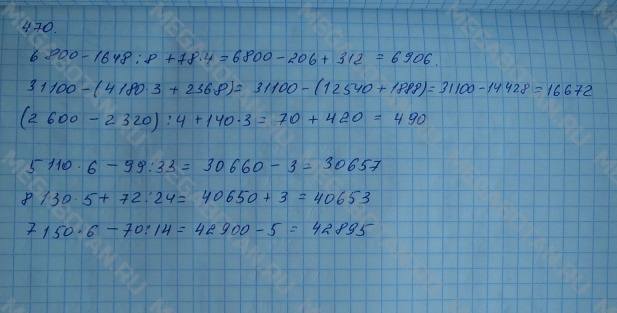 470.
6800-1648:8+78·4=6800-206+312=6906.
31100-(4180·3+2368)=31100-(12540+1888)=31100-14428=16672
(2600-2320):4+140·3=70+420=490
5110·6-99:33=30660-3=30657
8130·5+72:24=40650+3=40653
7150·6-70:14=42900-5=42895